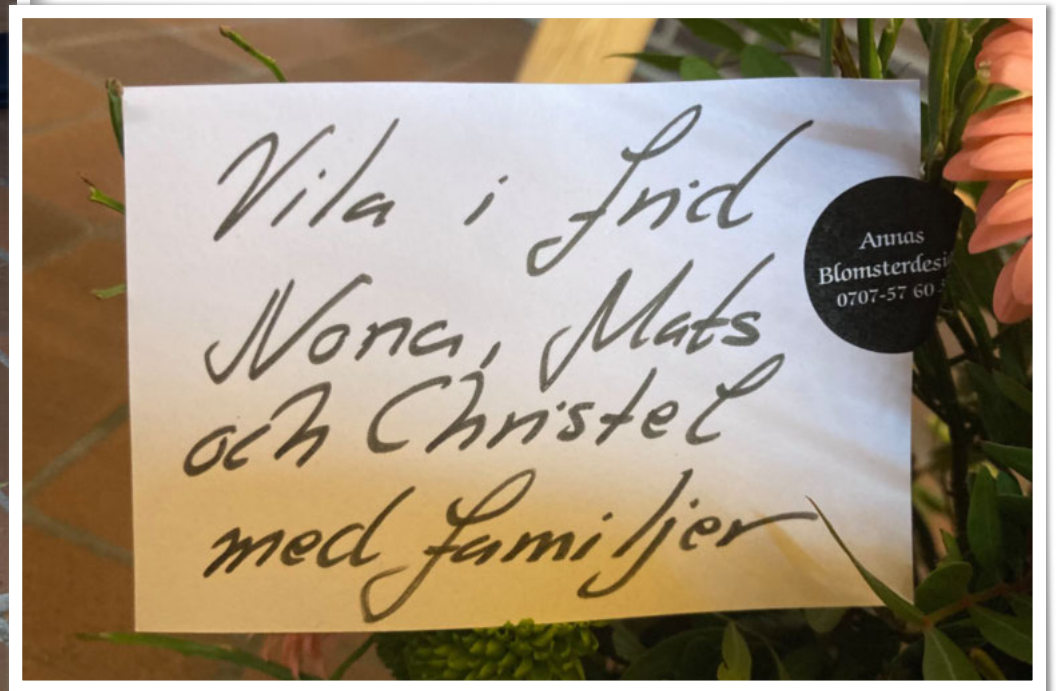 Vila i frid
Nona, Mats
och Christel
med familjer
Annas
Blomsterdesi
0707-57 60